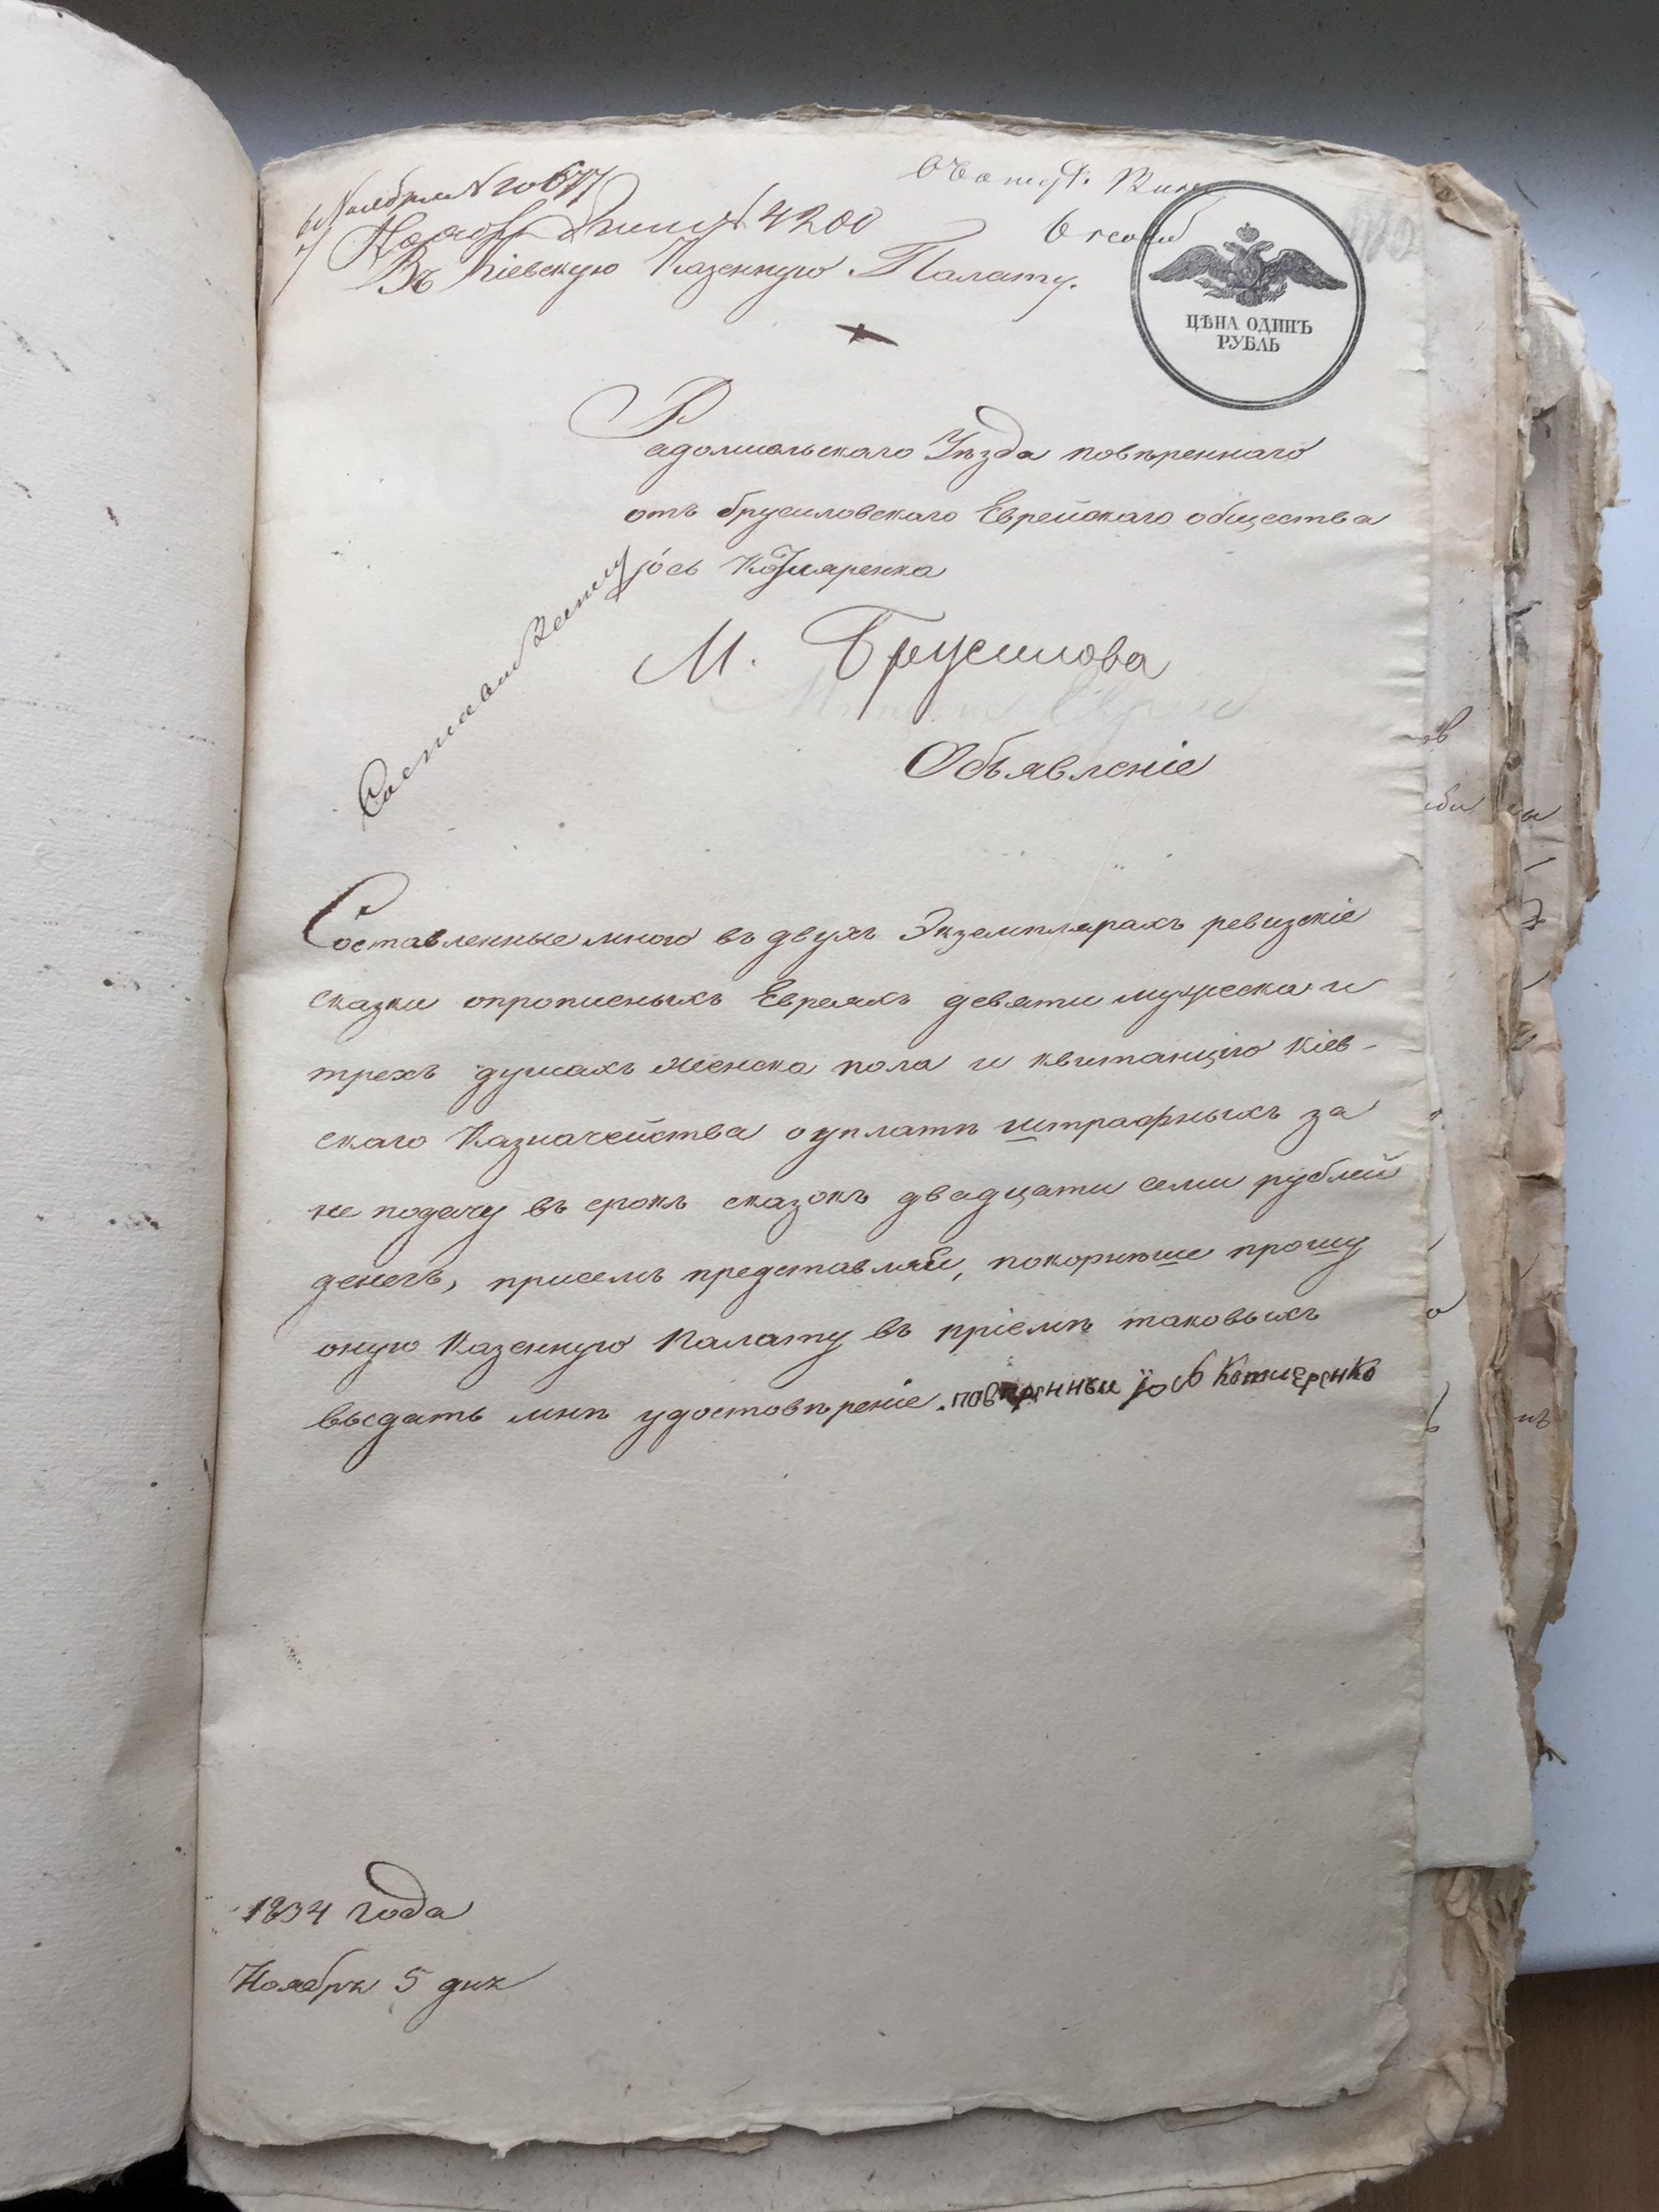 Ноября N 20677
N 4200
Въ Кіевскую Казенную Палату.
ЦѢНА ОДИНЪ
РУБЛЬ
Радомысльскаго Уѣзда повѣреннаго
отъ брусиловскаго Еврейскаго общества
М. Брусилова
Объявленіе
Составленные мною въ двухъ Экземплярахъ ревизскіе
сказки опрописныхъ Евреяхъ девяти мужеска и
трехъ душахъ женска пола и квитанцію Кіев-
скаго Казначейства о уплатѣ штрафныхъ за
не подачу въ срокъ сказокъ двадцати семи рублей
денегъ, присемъ представляя, покорнѣше прошу
оную Казенную Палату въ пріемѣ таковыхъ
высдать мнѣ удостовѣреніе.
1834 года
Ноябръ 5 дня